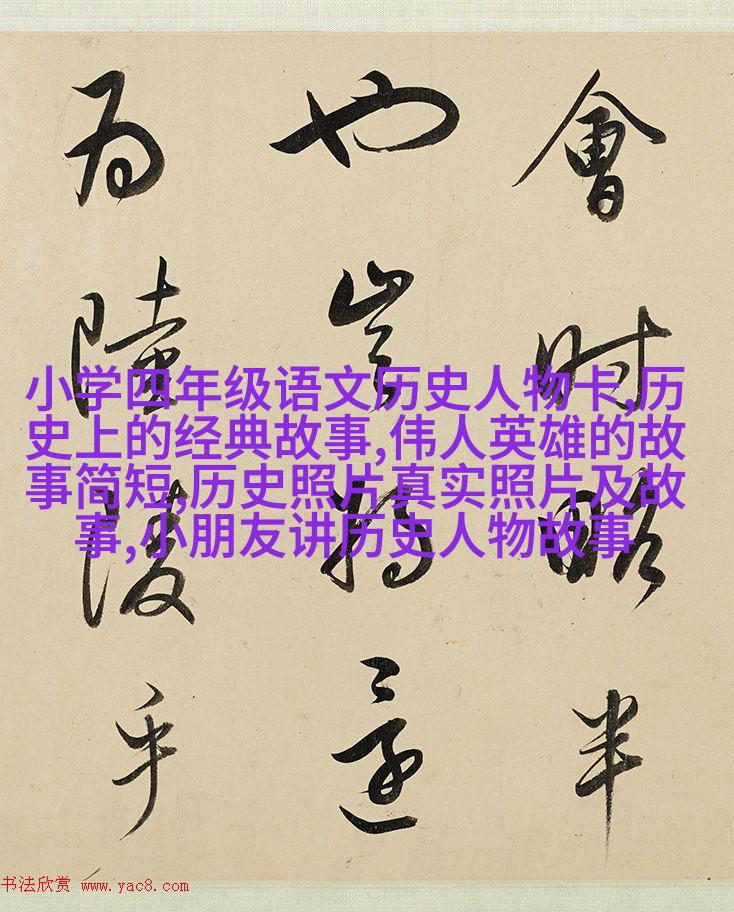 會時略半
也豈特還
為陵乎
小学四年级语文历史人物卡,历
史上的经典故事,伟人英雄的故
事简短,历史照片真实照片及故
事,小朋友讲历史人物故事
书法欣赏 www.yac8.com